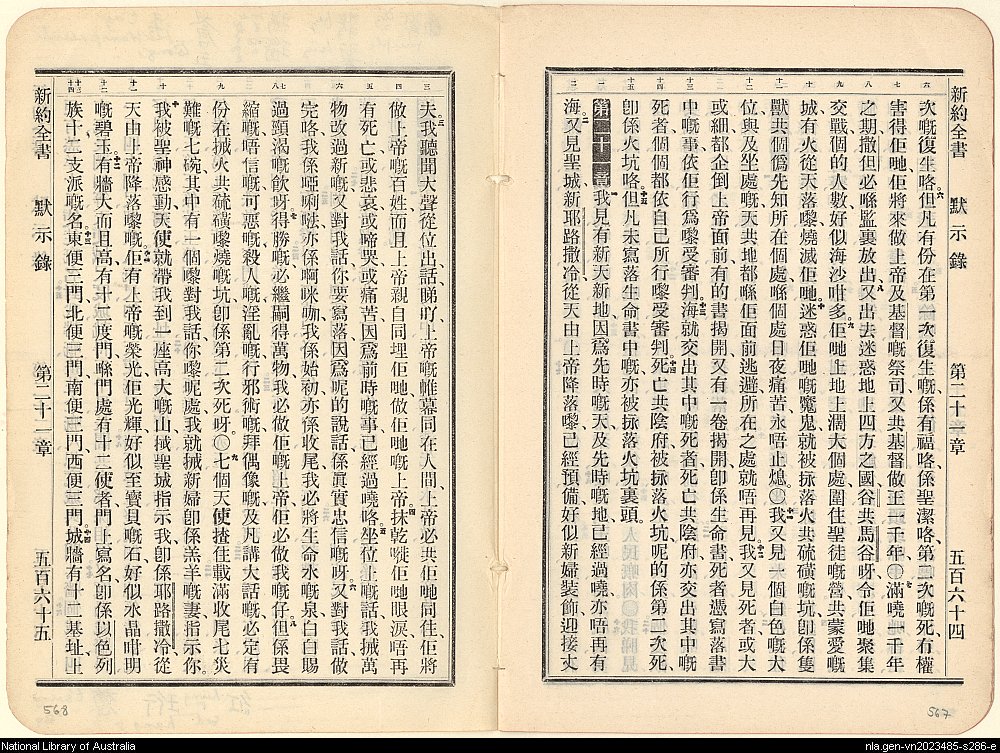 新約全書 默示錄 第二十一章 五百六十四
次嘅復生咯但凡有份在第一次復生嘅係有福咯係聖潔咯第二次嘅死冇權
害得佢哋佢將來做上帝及基督嘅祭司又共基督做王一千年滿曉一千年
之期撒但必喺監裏放出又出去迷惑地上四方之國谷共馬谷呀令佢哋聚集
交戰個的人數好似海沙咁多佢哋上地上濶大個處圍住聖徒嘅營共蒙愛嘅
城有火從天落嚟燒滅佢哋迷惑佢哋嘅魔鬼就被掁落火共硫磺嘅坑卽係隻
獸共個僞先知所在個處喺個處日夜痛苦永唔止熄○我又見一個白色嘅大
位與及坐處嘅天共地都喺佢面前逃避所在之處就唔再見我又見死者或大
或細都企倒上帝面前有的書揭開又有一卷揭開卽係生命書死者憑寫落書
中嘅事依佢行爲嚟受審判海就交出其中嘅死者死亡共陰府亦交出其中嘅
死者個個都依自己所行嚟受審判死亡共陰府掁落火坑呢的係第二次死
卽係火坑咯但凡未寫落生命書中嘅亦被掁落火坑裏頭
第二十一章 我見有新天新地因爲先時嘅天及先時嘅地已經過曉亦唔再有
海又見聖城新耶路撒冷從天由上帝降落嚟已經預備好似新婦裝飾迎接丈
新約全書 默示錄 第二十一章 五百六十五
夫我聽聞大聲從位出話睇吖上帝嘅帷幕同在人間上帝必共佢哋同住佢將
做上帝嘅百姓而且上帝親自同埋佢哋做佢哋嘅上帝抹乾嘥佢哋眼淚唔再
有死亡或悲哀或啼哭或痛苦因爲前時嘅事已經過曉咯坐位上嘅話我搣萬
物改過新嘅又對我話你要寫落因爲呢的說話係眞實忠信嘅呀又對我話做
完咯我係啞唎𠸎亦係啊咪咖我係始初亦係收尾我必將生命水嘅泉白白賜
過頸渴嘅飲呀得勝嘅必繼嗣得萬物我必做佢嘅上帝佢必做我嘅仔但係畏
縮嘅唔信嘅可惡嘅殺人嘅淫亂嘅行邪術嘅拜偶像嘅及凡講大話嘅必定有
份在搣火共硫磺嚟燒嘅坑卽係第二次死呀○七個天使揸住載滿收尾七災
難嘅七碗其中有一個嚟對我話你嚟呢處我就搣新婦卽係羔羊嘅妻指示你
我被聖神感動天使就帶我到一座高大嘅山搣聖城指示我卽係耶路撒冷從
天由上帝降落嚟嘅佢有上帝嘅榮光佢光輝好似至寶貝嘅石好似水晶咁明
嘅碧玉有牆大而且高有十二度門喺門處有十二使者門上寫名卽係以色列
族十二支派嘅名東便三門北便三門南便三門西便三門城牆有十二基址上
568
567
National Library of Australia
nla.gen-vn2023485-s286-e